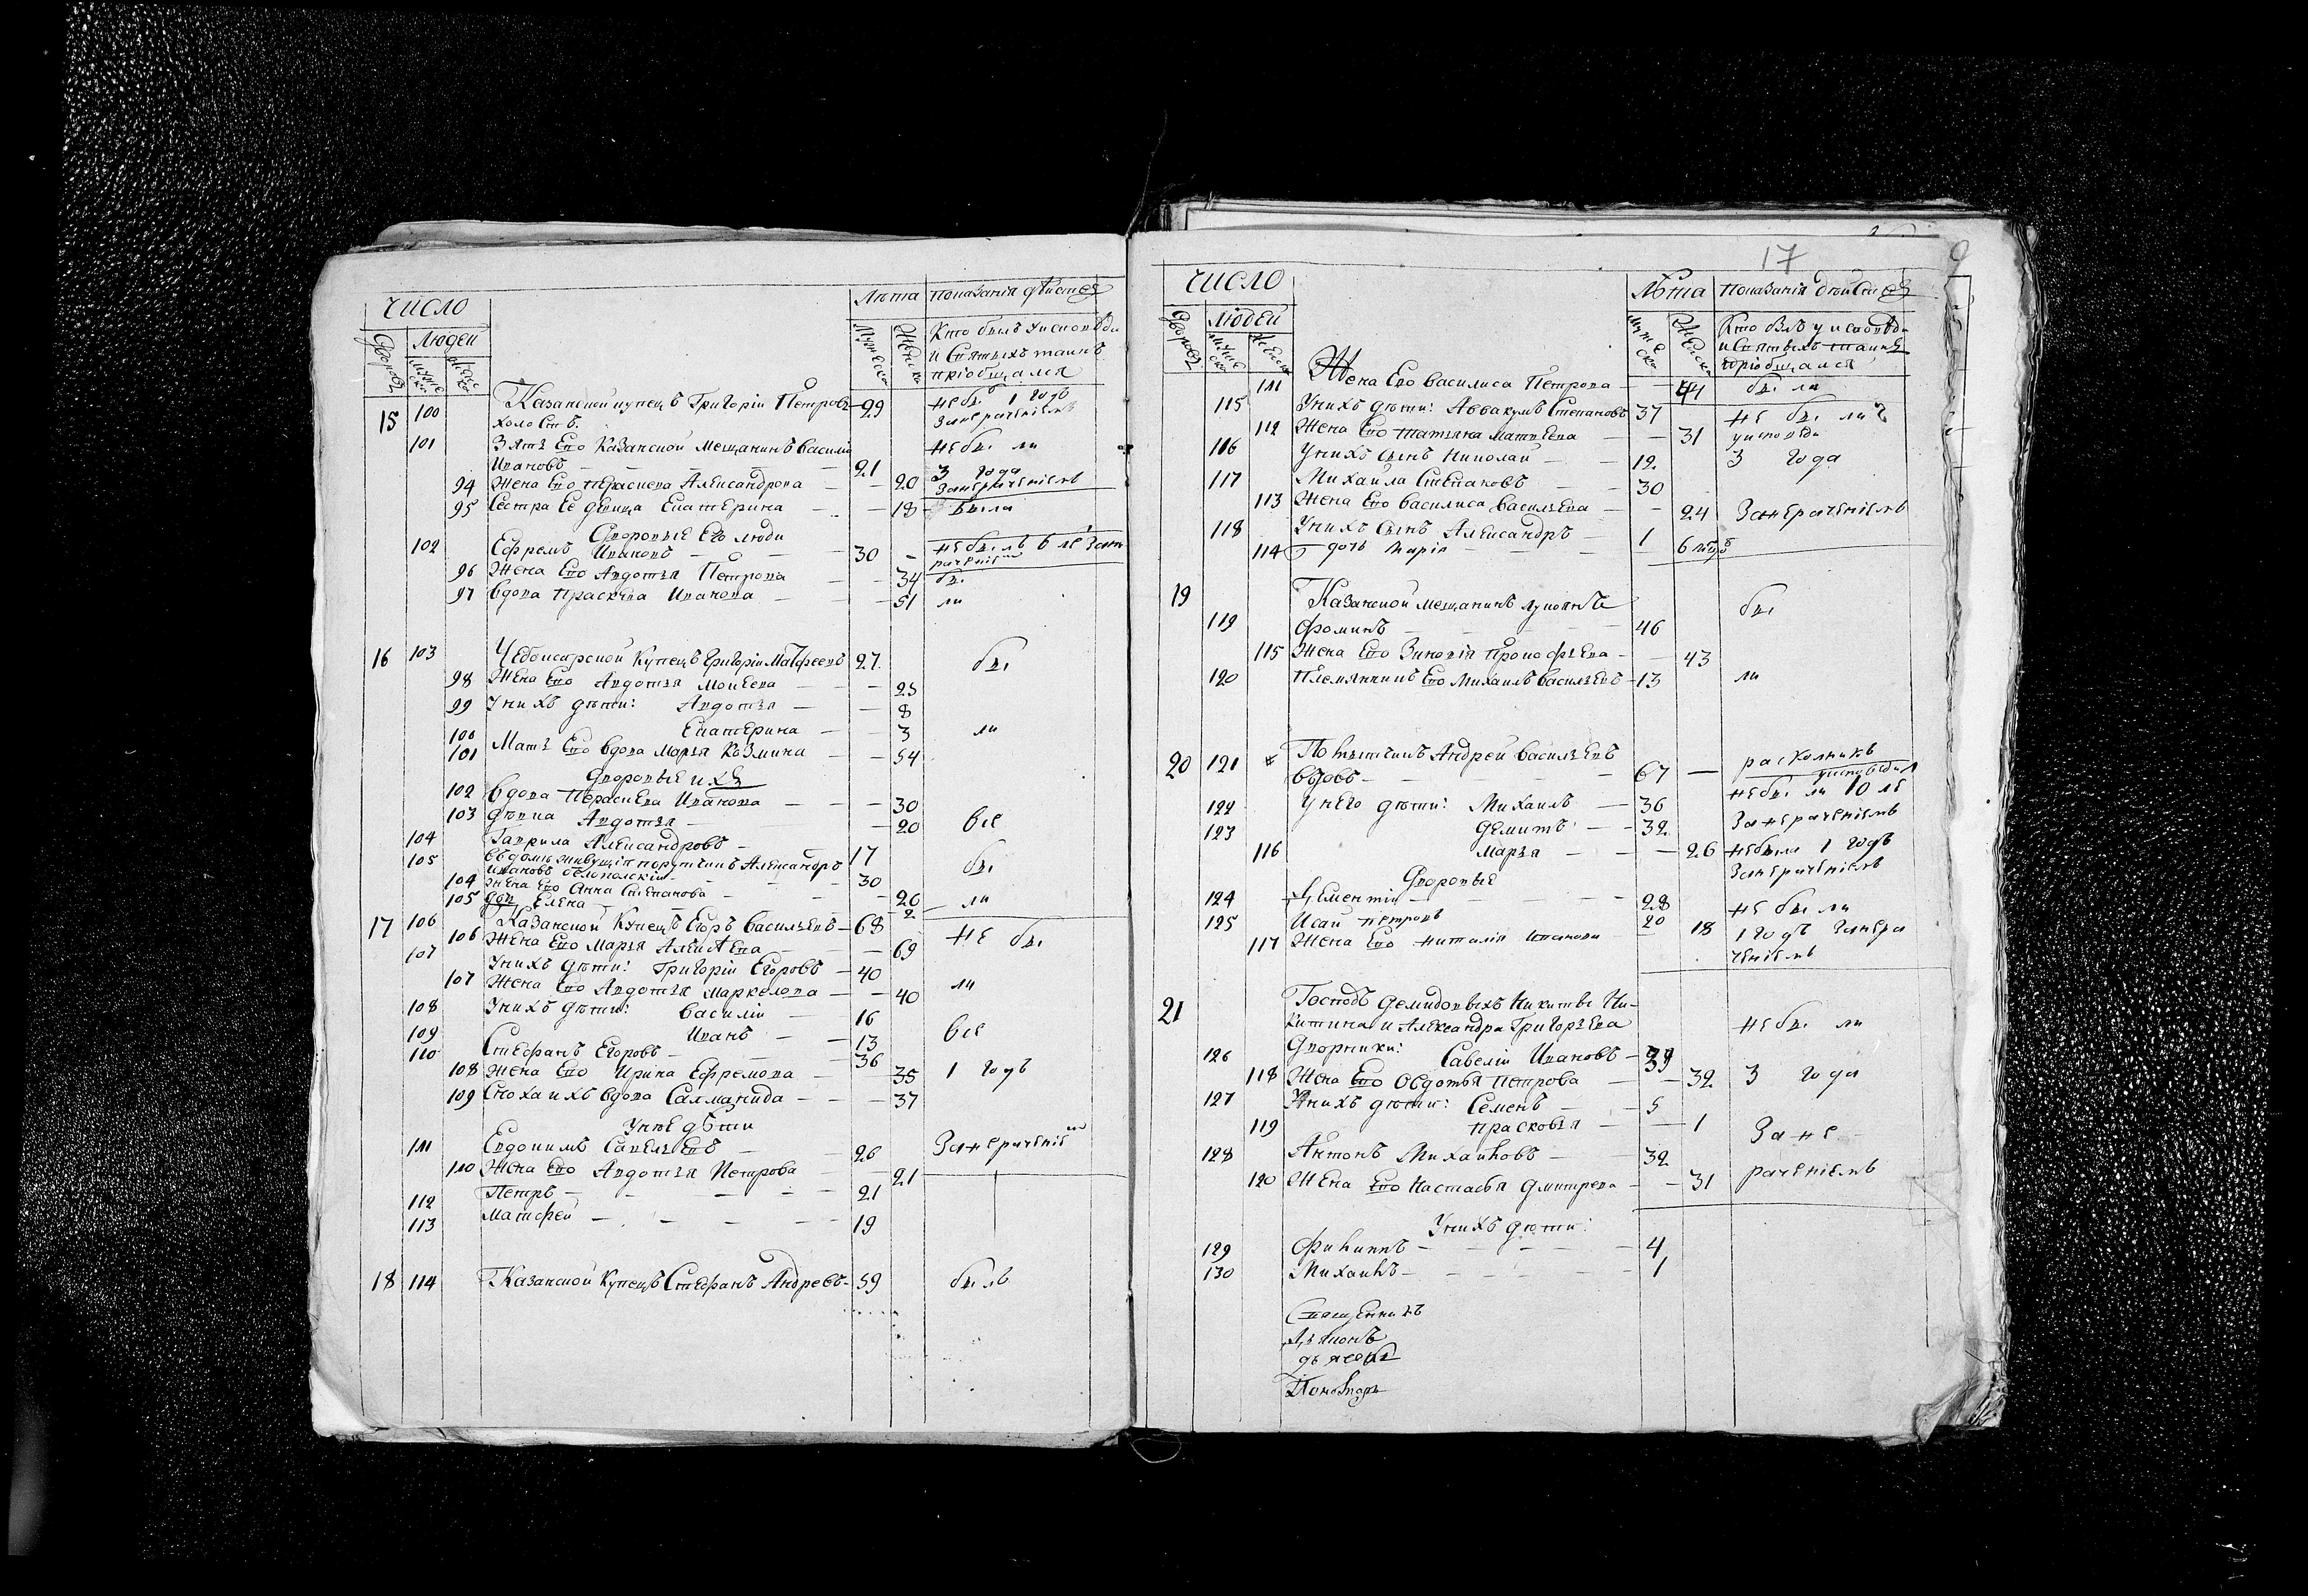 ЧИСЛО Лѣта показанія дѣйствія
дворовъ Людей Мужеска Женска Кто былъ у исповѣди
и Святыхъ таинъ
пріобщался
15 100 Казанской купецъ Григорій Петровъ 29 не бы 1 годъ
холостъ. За нераченіемъ
101 Зять Его Казанской мещанинъ Василій не бы ли
Ивановъ 21 3 года
94 Жена Его Параскева Александрова 20 За нераченіемъ
95 Сестра Ее девица Екатерина 18 была
Дворовые Его люди
102 Ефремъ Ивановъ 30 не былъ 6 ле За не
раченіем
96 Жена Его Авдотья Петрова 34 бы
97 вдова Праскева Иванова 51 ли
16 103 Чебоксарской Купецъ Григорій Матфеевъ 27 бы
98 Жена Его Авдотья Моисеева 23
99 У нихъ дѣти: Авдотья 8
100 Екатерина 3 ли
101 Мать Его вдова Марья Козмина 54
Дворовые ихъ
102 вдова Параскева Иванова 30
103 дѣвка Авдотья 20 все
104 Гаврила Александровъ 17
105 въ доме живущій порутчикъ Александръ бы
Ивановъ 30
104 Жена Его Анна Степанова 20 ли
105 доч Елена 2
17 106 Казанской Купецъ Егоръ Васильевъ 68
106 Жена Его Марья Алексѣева 69 не бы
107 У нихъ дѣти: Григорій Егоровъ 40
107 Жена Его Авдотья Маркелова 40 ли
108 У нихъ дѣти: Василій 16
109 Иванъ 13 все
110 Стефанъ Егоровъ 36
108 Жена Его Ирина Ефремова 35 1 годъ
109 Сноха ихъ вдова Саломанида 37
У нее дѣти
111 Евдокимъ Савельевъ 26 За нераченіем
110 Жена Его Авдотья Петрова 21
112 Петръ 21
113 Матфей 19
18 114 Казанской Купецъ Стефанъ Андреевъ 59 былъ
17
ЧИСЛО Лѣта показанія дѣйствія
дворовъ Людей Мужеска Женска Кто былъ у исповѣди
и Святыхъ таинъ
пріобщался
111 Жена Его Василиса Петрова 41 бы ли
115 У нихъ дѣти: Аввакумъ Степановъ 37 не бы ли у
112 Жена Его Татьяна Матвеева 31 исповѣди
116 У нихъ сынъ Николай 12 3 года
117 Михайла Степановъ 30
113 Жена Его Василиса Васильева 24 За нераченіемъ
118 У нихъ сынъ Александръ 1
114 дочь Марія 6
19 Казанской мещанинъ Лукоянъ бы
119 Фоминъ 46
115 Жена Его Зиновія Прокофьева 43
120 Племянникъ Его Михаилъ Васильевъ 13 ли
20 121 Андрей Васильевъ расколникъ
вдовъ 67
122 У него дѣти: Михаилъ 36 не бы ли 10 ле
123 Демитъ 32 За нераченіемъ
116 Марья 26 не была 1 годъ
Дворовые За нераченіемъ
124 Клементій 28 не бы ли
125 Исай Петровъ 20 18 1 годъ За нера
117 Жена Его Наталія Иванова ченіемъ
21 Господъ Демидовыхъ Никиты Ни-
китина и Александра Григорьева не бы ли
Дворники:
126 Савелій Ивановъ 39
118 Жена Его Овдотья Петрова 32 3 года
127 У нихъ дѣти: Семенъ 5
119 Прасковья 1 За не
128 Антонъ Михайловъ 32
120 Жена Его Настасья Дмитрева 31 раченіемъ
У нихъ дѣти:
129 Филиппъ 4
130 Михаилъ 1
Священникъ
Діаконъ
Дьячекъ
Пономарь